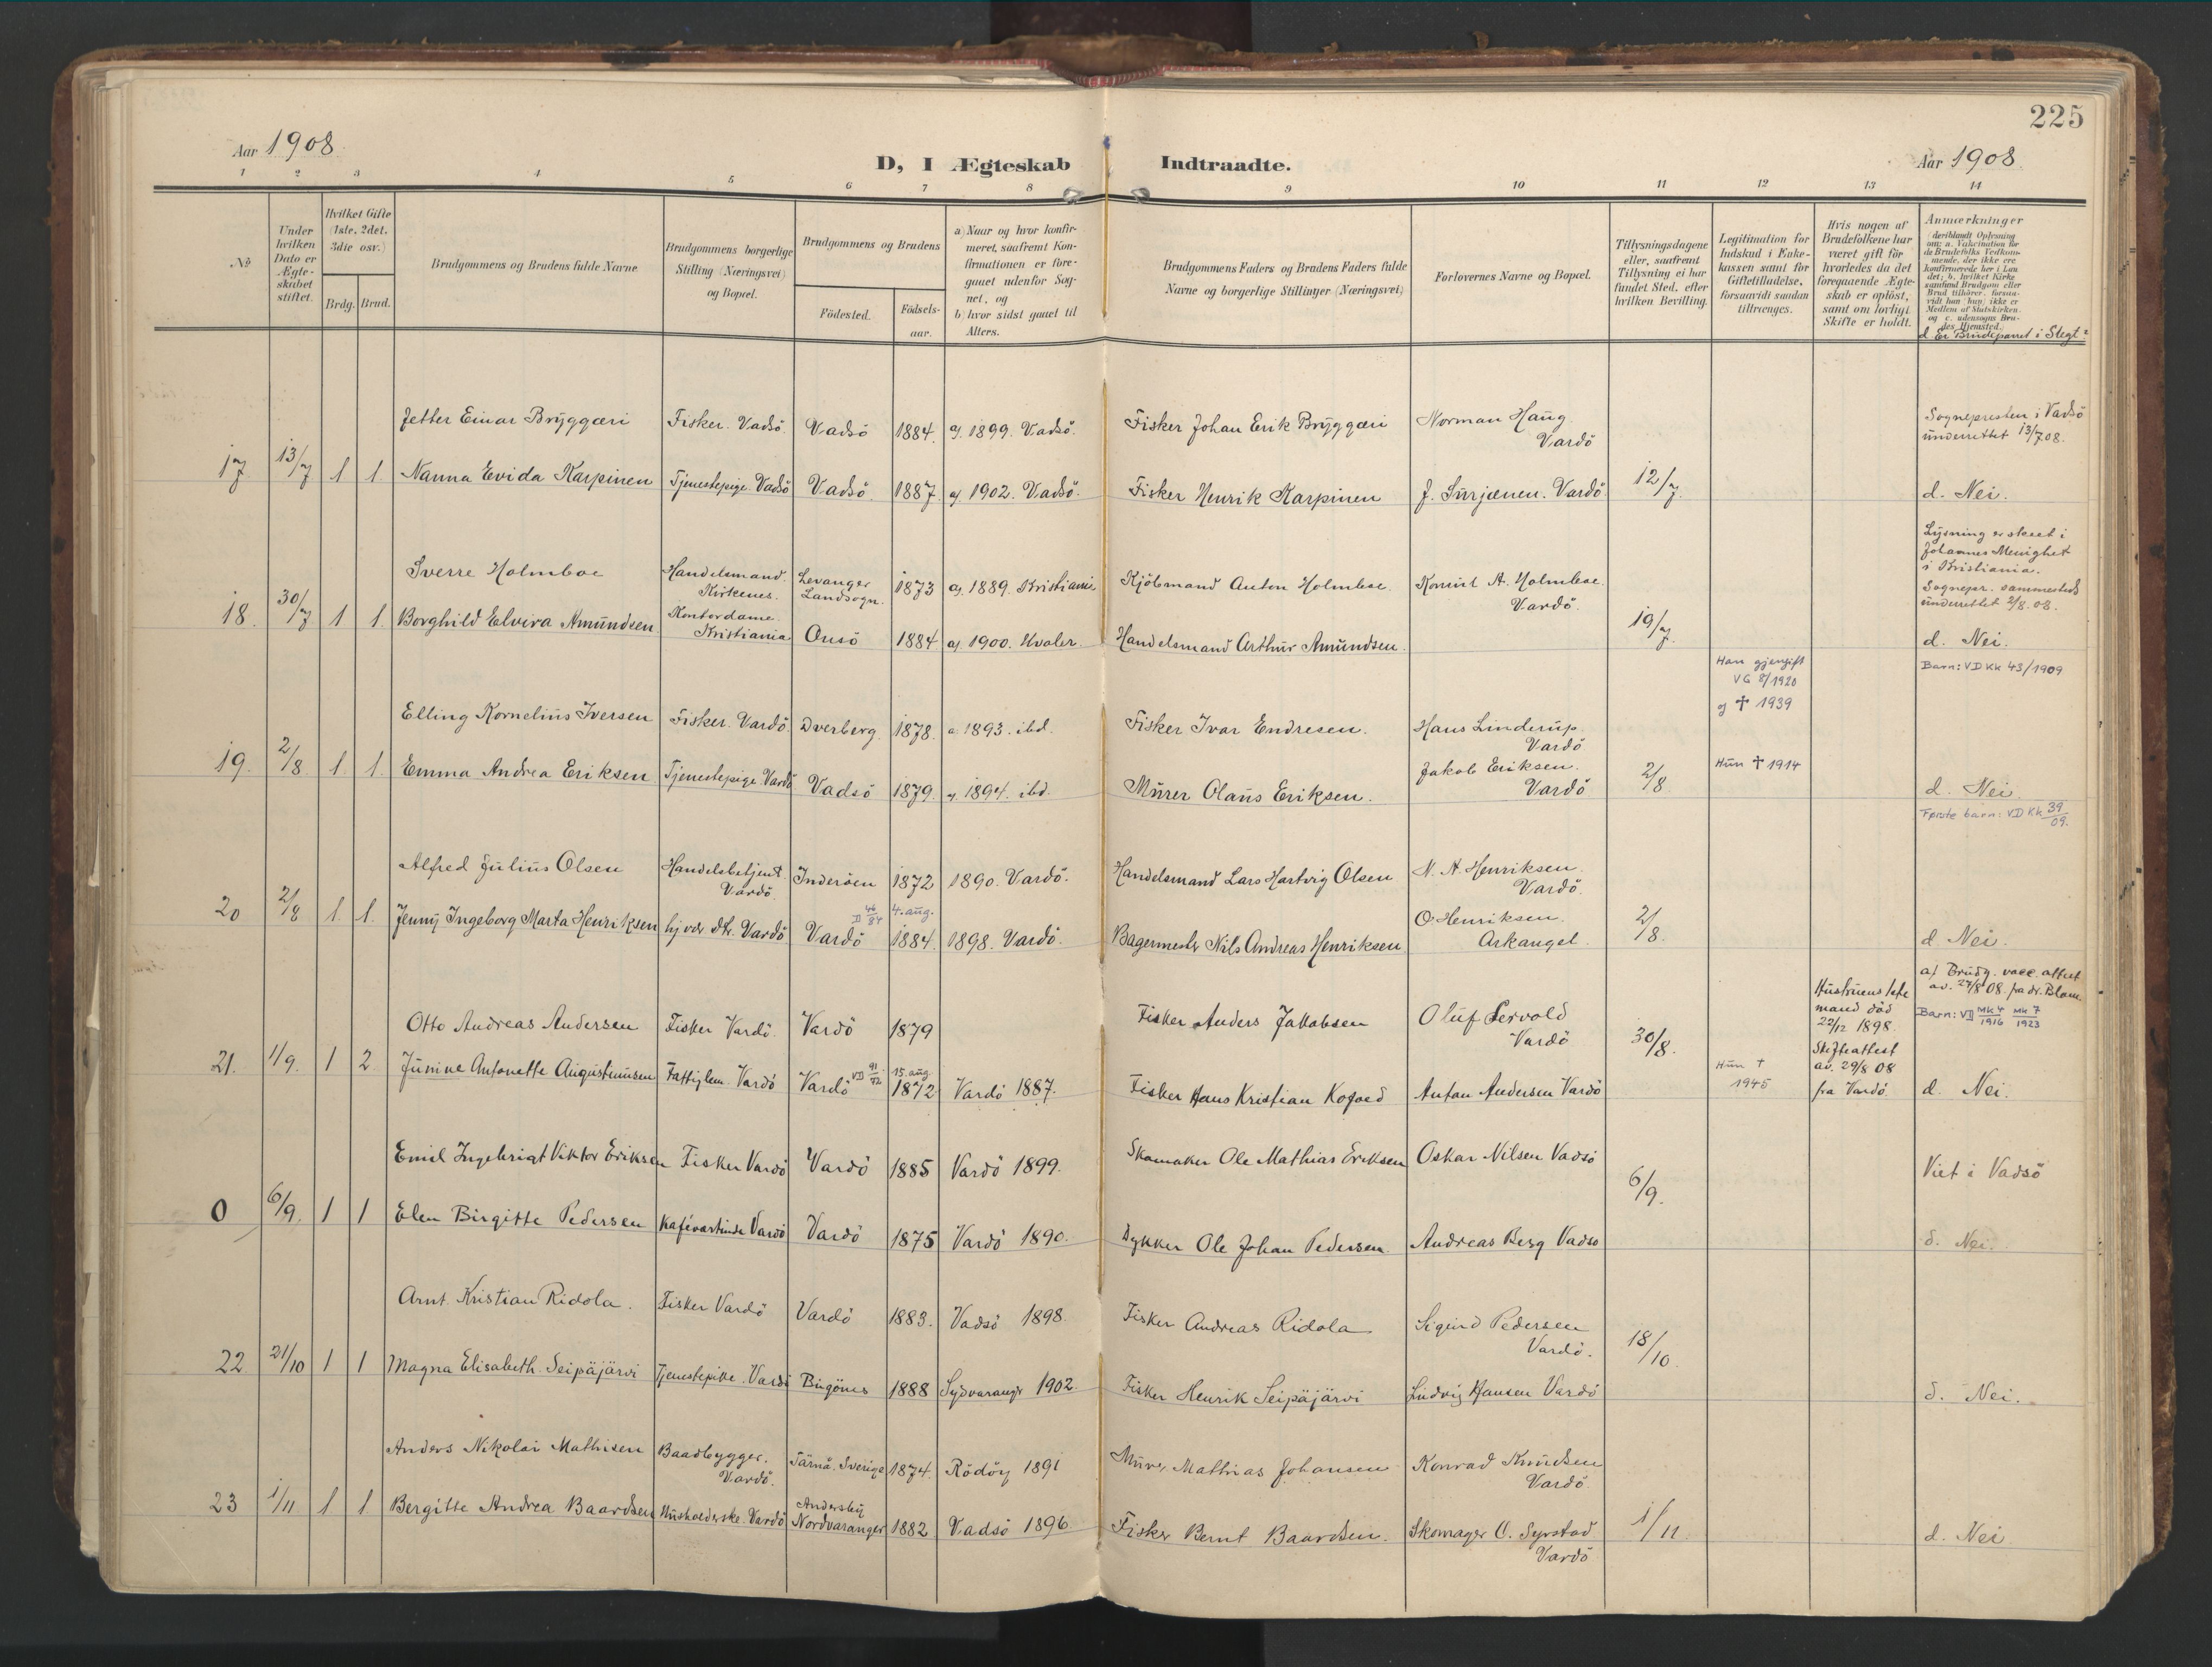 225
Aar 1908.
D, I Ægteskab Indtraadte.
Aar 1908.
1 2 3 4 5 6 7 8 9 10 11 12 13 14
No
Under hvilken Dato er Ægteskabet stiftet.
Hvilket Gifte (1ste, 2det, 3die osv.)
Brdg. Brud.
Brudgommens og Brudens fulde Navne
Brudgommens borgerlige Stilling (Næringsvei) og Bopæl.
Brudgommens og Brudens
Födested.
Födselsaar.
a) Naar og hvor konfirmeret, saafremt Konfirmationen er foregaaet udenfor Sognet, og
b) hvor sidst gaaet til Alters.
Brudgommens Faders og Brudens Faders fulde Navne og borgerlige Stillinger (Næringsvei)
Forlovernes Navne og Bopæl.
Tillysningsdagene eller, saafremt Tillysning ei har fundet Sted, efter hvilken Bevilling.
Legitimation for Indskud i Enkekassen samt for Giftetilladelse, forsaavidt saadan tiltrænges.
Hvis nogen af Brudefolkene har været gift før hvorledes da det foregaaende Ægteskab er oplöst, samt om lovligt Skifte er holdt.
Anmærkninger
(deriblandt Oplysning om: a. Vakcination for de Brudefolks Vedkommende, der ikke ere konfirmerede her i Landet; b. hvilket Kirkesamfund Brudgom eller Brud tilhører, forsaavidt han (hun) ikke er Medlem af Statskirken. og c. udensogns Brudes Hjemsted.)
d. Er Brudeparret i Slegt?
Jetter Einar Bryggæri
Fisker. Vadsö.
Vadsö
1884.
a). 1899. Vadsö.
Fisker Johan Erik Bryggæri
Norman Haug
Vardö
Sognepresten i Vadsö
underrettet 13/7 08.
17 13/7 1 1.
Nanna Evida Karpinen
Tjenestepige. Vadsö
Vadsö.
1887.
a) 1902. Vadsö.
Fisker Henrik Karpinen
J. Surjænen. Vardö
12/7.
d. Nei.
Sverre Holmboe
Handelsmand.
Kirkenes.
Levanger
Landsogn.
1873
a). 1889. Kristiania
Kjöbmand Anton Holmboe.
Konsul A. Holmboe.
Vardö.
Lysning er skeet i
Johannes Menighet
i Kristiania.
Sognepr. sammesteds
underrettet 2/8. 08.
18. 30/7 1 1.
Borghild Elvira Amundsen
Kontordame
Kristiania
Onsö
1884
a). 1900. Hvaler.
Handelsmand Arthur Amundsen.
19/7.
d. Nei.
Han gjengift
VG 8/1920
og † 1939
Barn: VD KK 43/1909
Elling Kornelius Iversen
Fisker. Vardö.
Dverberg.
1878.
a. 1893. ibd.
Fisker Ivar Endresen.
Hans Linderup.
Vardö
19. 2/8 1. 1.
Emma Andrea Eriksen
Tjenestepige. Vardö
Vadsö
1879.
a). 1894. ibd.
Murer Olaus Eriksen.
Jakob Eriksen.
Vardö
2/8
Hun † 1914
d. Nei.
Første barn: VD KK 39/09.
Alfred Julius Olsen
Handelsbetjent
Vardö.
Inderöen
1872
1890. Vardö.
Handelsmand Lars Hartvig Olsen
N. A. Henriksen.
Vardö.
20 2/8 1. 1.
Jenny Ingeborg Marta Henriksen
hjvær. dtr. Vardö
D 46/84
Vardö
4. aug.
1884.
1898. Vardö.
Bagermester Nils Andreas Henriksen
O Henriksen.
Arkangel.
2/8.
d Nei.
Otto Andreas Andersen
Fisker Vardö.
Vardö
1879
Fisker Anders Jakobsen
Oluf Lervold
Vardö
Hustruens 1ste
mand död
22/12 1898.
Skifteattest
av. 29/8 08
fra Vardö
a) Brudg. vacc. attest
av. 27/8 08. fra dr. Blom.
Barn: VD MK 4/1916 MK 7/1923
21. 1/9. 1 2
Junine Antonette Augustinusen
Fattiglem. Vardö
Vardö
VD 91/72
15. aug.
1872
Vardö 1887.
Fisker Hans Kristian Kofoed
Anton Andersen Vardö
30/8.
Hun †
1945
d. Nei.
Emil Ingebrigt Viktor Eriksen
Fisker Vardö
Vardö
1885
Vardö 1899.
Skomaker Ole Mathias Eriksen
Oskar Nilsen Vadsö
Viet i Vadsö
0 6/9. 1 1
Elen Birgitte Pedersen
Kafévartinde Vardö
Vardö
1875
Vardö 1890.
Dykker Ole Johan Pedersen.
Andreas Berg Vadsö
6/9.
d. Nei.
Arnt. Kristian Ridola.
Fisker Vardö
Vardö
1883.
Vadsö 1898.
Fisker Andreas Ridola
Sigurd Pedersen
Vardö.
22. 21/10 1 1
Magna Elisabeth. Seipäjärvi
Tjenestepike. Vardö
Bugönes
1888
Sydvaranger 1902.
Fisker Henrik Seipäjärvi
Ludvig Hansen Vardö
18/10.
d. Nei.
Anders Nikolai Mathisen
Baadbygger.
Vardö.
Tärna. Sverige
1874.
Rödöy 1891
Murer Mathias Johansen
Konrad Knudsen
Vardö.
23 1/11 1 1.
Bergitte Andrea Baardsen
Husholderske. Vardö
Andersby
Nordvaranger
1882
Vadsö 1896.
Fisker Bernt Baardsen.
Skomager O. Syrstad
Vardö
1/11.
d. Nei